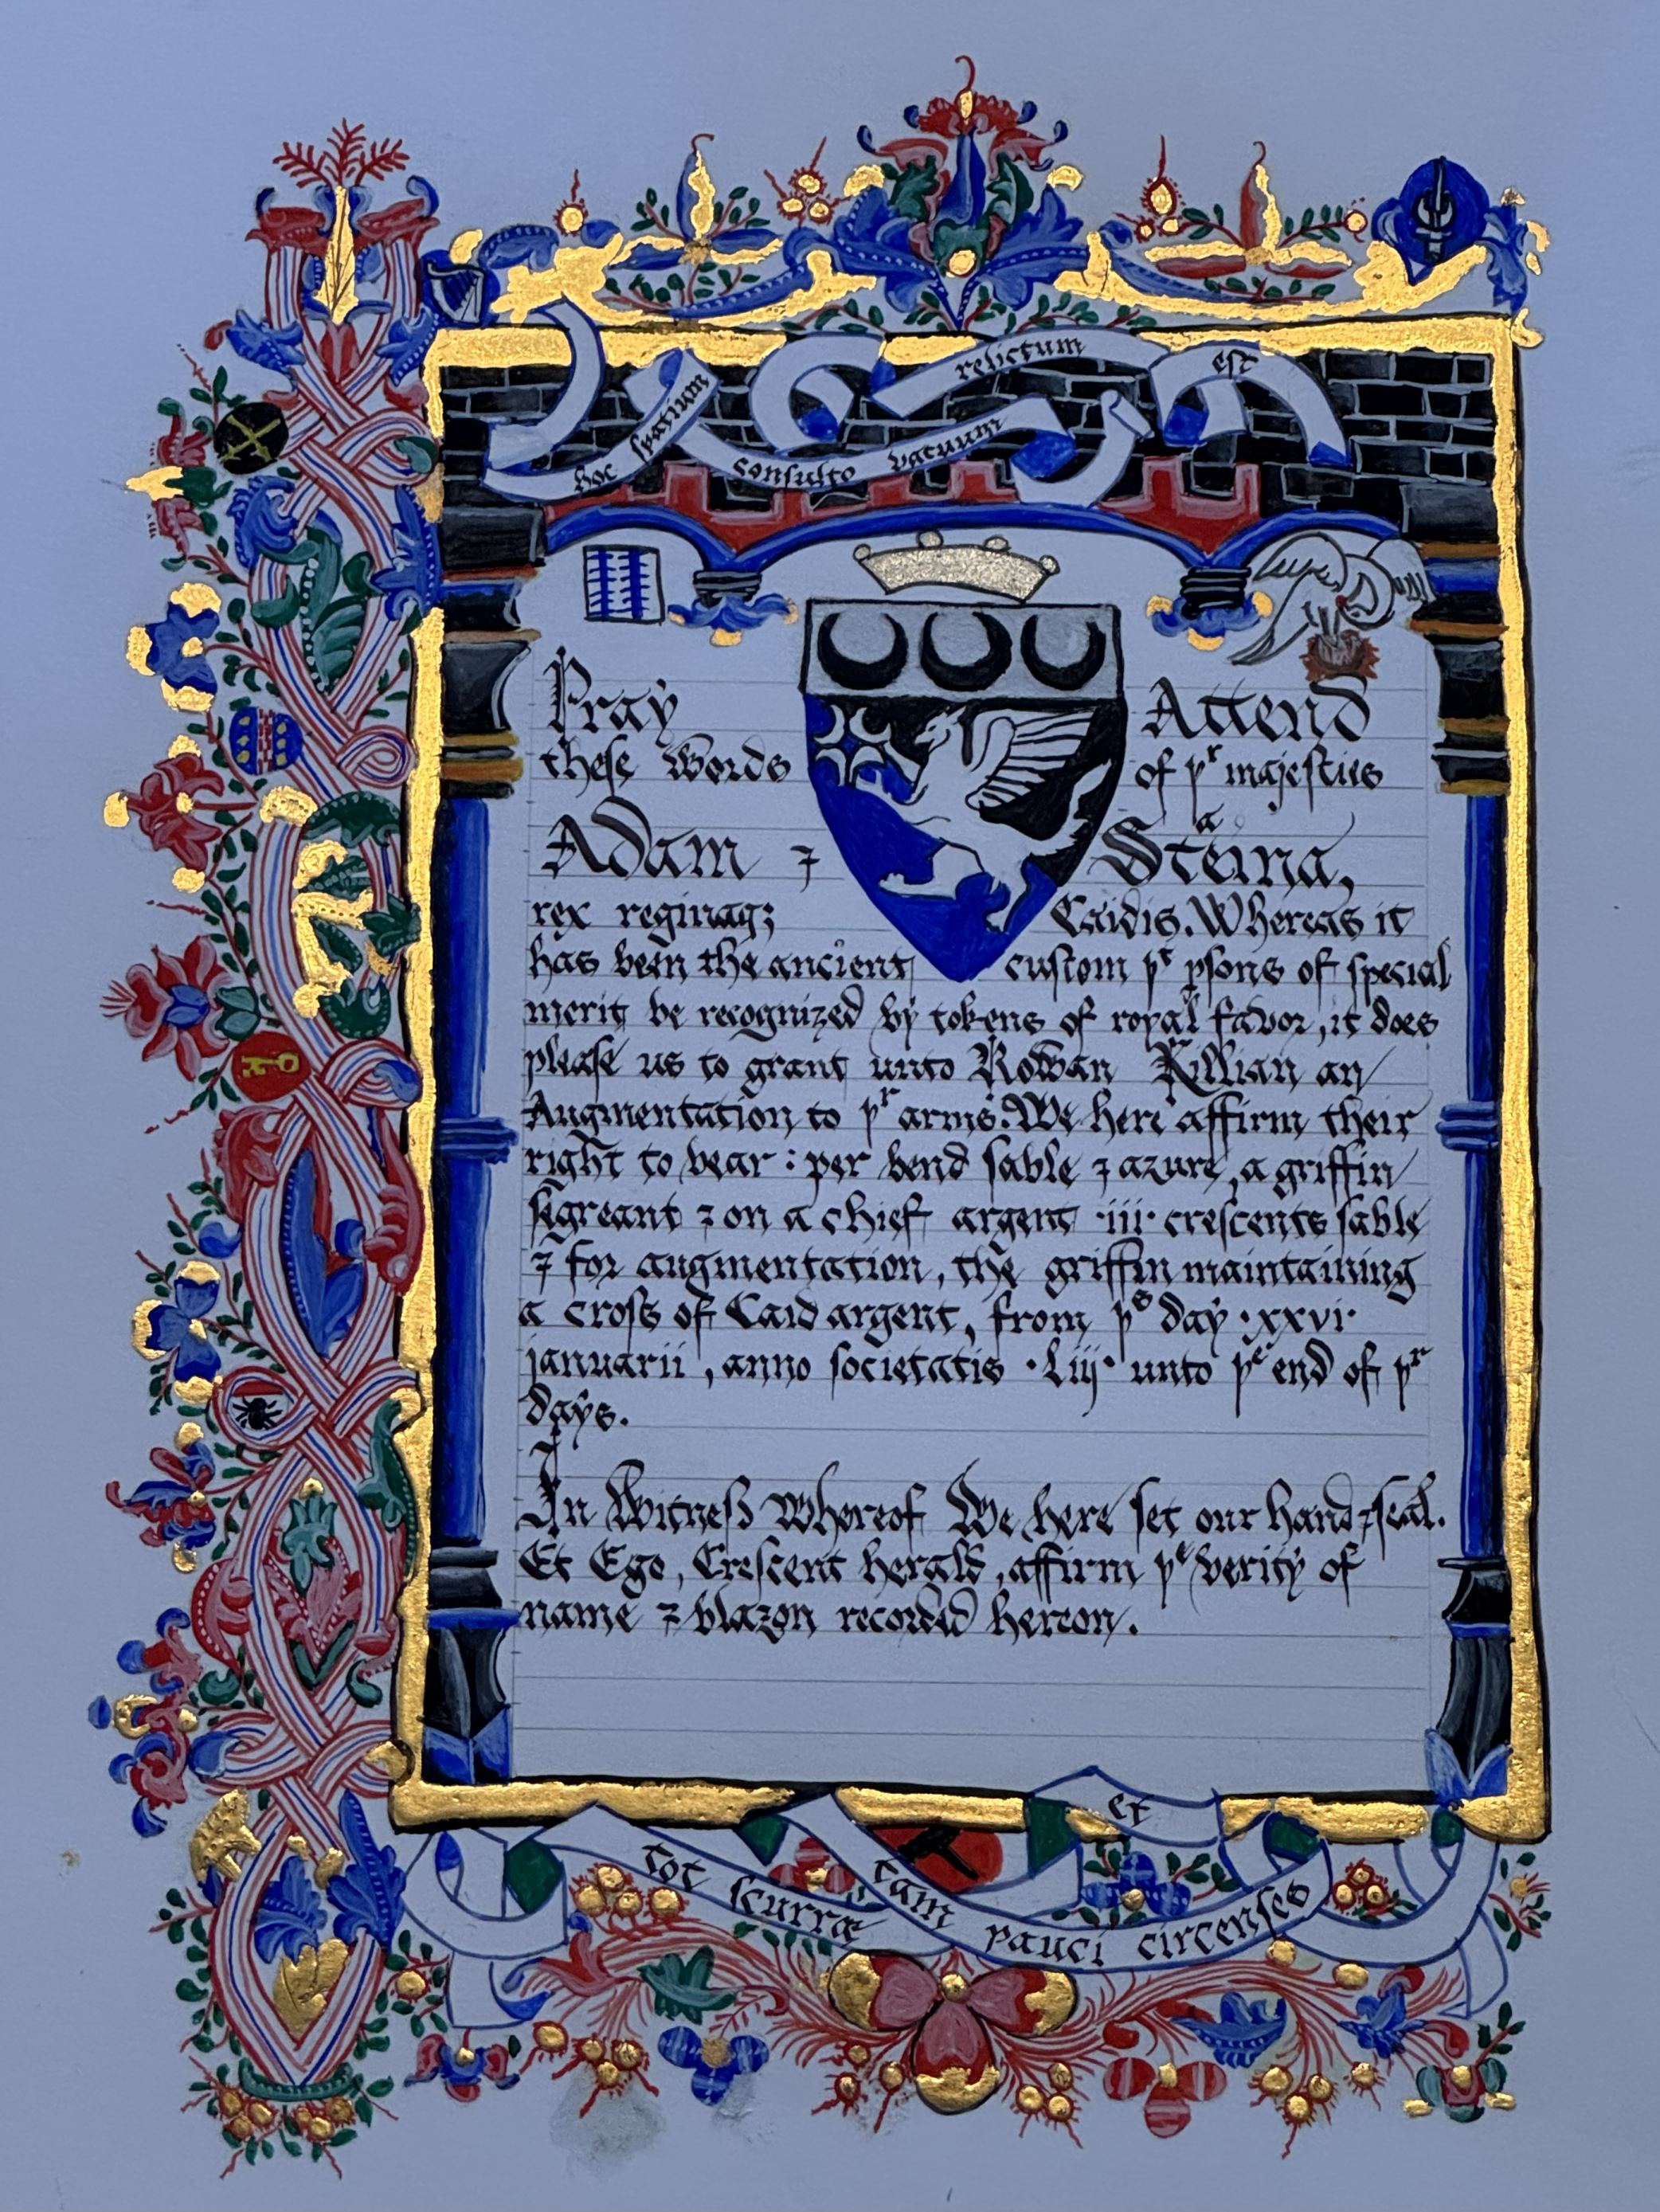 hoc spatium consulto vacuum relictum est
Pray Attend
these Words of þʳ majesties
Adam ⁊ Steina,
rex reginaqꝫ Caidis. Whereas it
has been the ancient custom þᵗ psons of special
merit be recognized by tokens of royal favor, it does
please us to grant unto Rowan Killian an
Augmentation to þʳ arms. We here affirm their
right to bear : per bend sable ⁊ azure, a griffin
segreant ⁊ on a chief argent ·iii· crescents sable
⁊ for augmentation, the griffin maintaining
a cross of Caid argent, from þˢ day ·xxvi·
januarii, anno societatis ·Liij· unto þᵉ end of þʳ
days.
In Witness Whereof We here set our hand ⁊ seal.
Et Ego, Crescent herald, affirm þᵉ verity of
name ⁊ blazon recorded hereon.
tot scurræ et tam pauci circenses